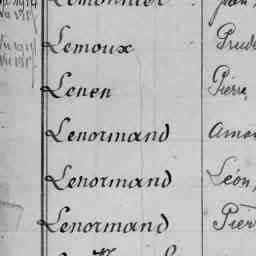 Lemonnier
Lemoux Prude
Lenen Pierre,
Lenormand Aman
Lenormand Léon,
Lenormand Pierr